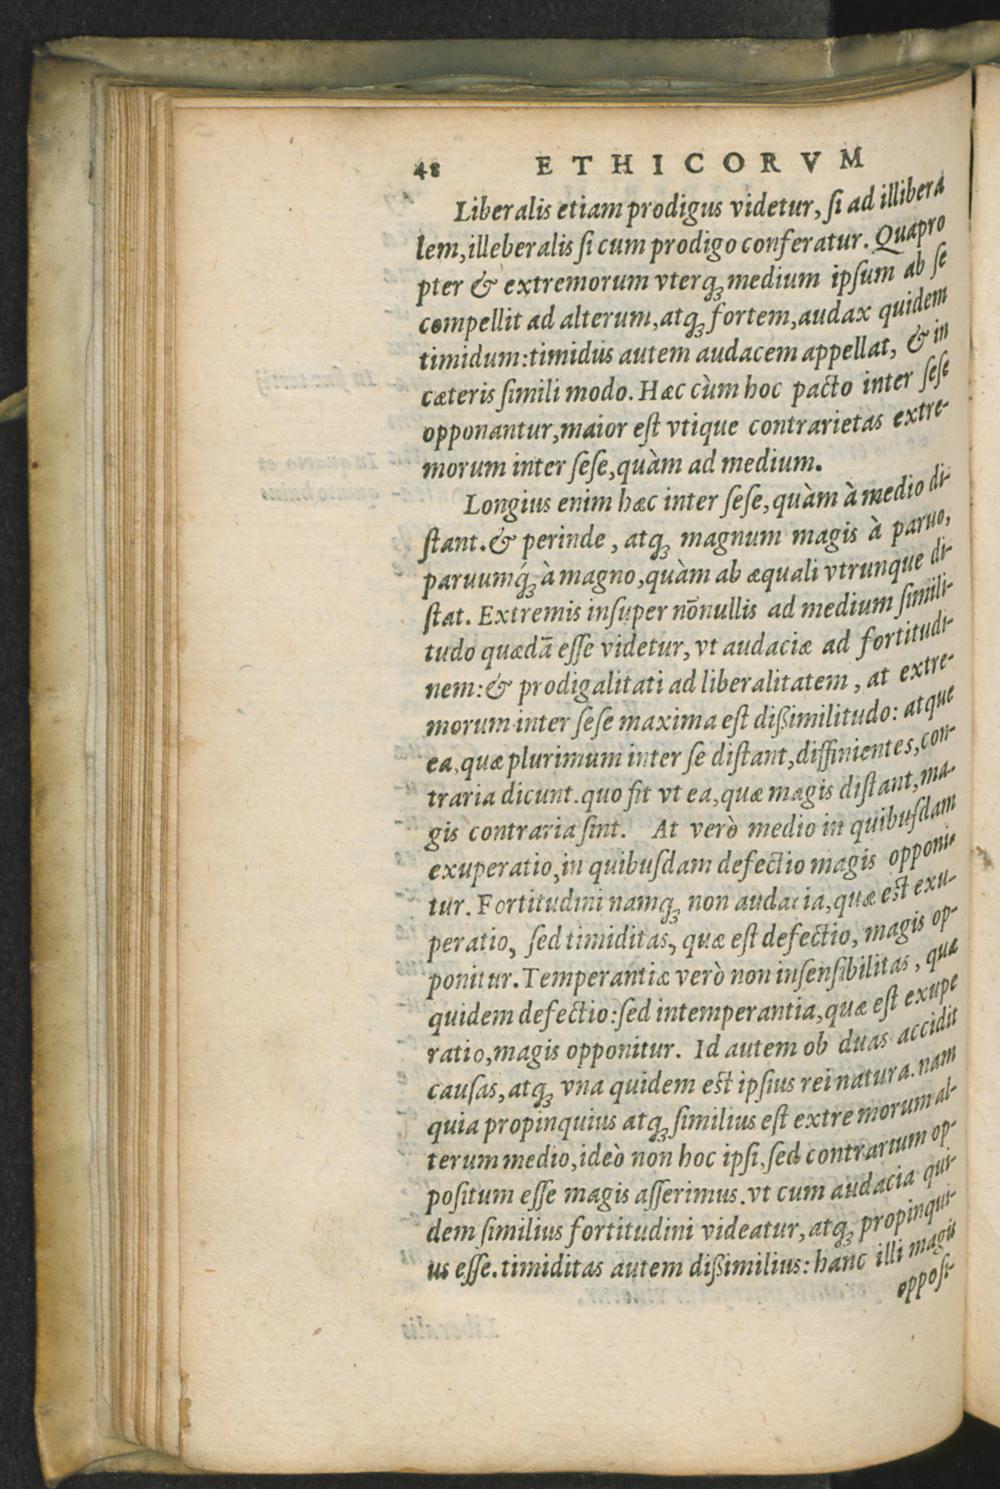 48 ETHICORVM
Liberalis etiam prodigus videtur, ſi ad illibera
lem, illeberalis ſi cum prodigo conferatur. Quapro
pter & extremorum vterq; medium ipſum ab ſe
compellit ad alterum, atq; fortem, audax quidem
timidum: timidus autem audacem appellat, & in
cæteris ſimili modo. Hæc cùm hoc pacto inter ſeſe
opponantur, maior eſt vtique contrarietas extre-
morum inter ſeſe, quàm ad medium.
Longius enim hæc inter ſeſe, quàm à medio di-
ſtant. & perinde, atq; magnum magis à paruo,
paruumq́; à magno, quàm ab æquali vtrunque di-
ſtat. Extremis inſuper nōnullis ad medium ſimili-
tudo quædā eſſe videtur, vt audaciæ ad fortitudi-
nem: & prodigalitati ad liberalitatem, at extre-
morum inter ſeſe maxima eſt dißimilitudo: atque
ea, quæ plurimum inter ſe diſtant, diffinientes, con-
traria dicunt. quo fit vt ea, quæ magis diſtant, ma-
gis contraria ſint. At verò medio in quibuſdam
exuperatio, in quibuſdam defectio magis opponi-
tur. Fortitudini namq; non audacia, quæ eſt exu-
peratio, ſed timiditas, quæ eſt defectio, magis op-
ponitur. Temperantiæ verò non inſenſibilitas, quæ
quidem defectio: ſed intemperantia, quæ eſt exupe
ratio, magis opponitur. Id autem ob duas accidit
cauſas, atq; vna quidem eſt ipſius rei natura. nam
quia propinquius atq; ſimilius eſt extremorum al-
terum medio, ideò non hoc ipſi, ſed contrarium op-
poſitum eſſe magis aſſerimus. vt cum audacia qui-
dem ſimilius fortitudini videatur, atq; propinqui-
us eſſe. timiditas autem dißimilius: hanc illi magis
oppoſi-